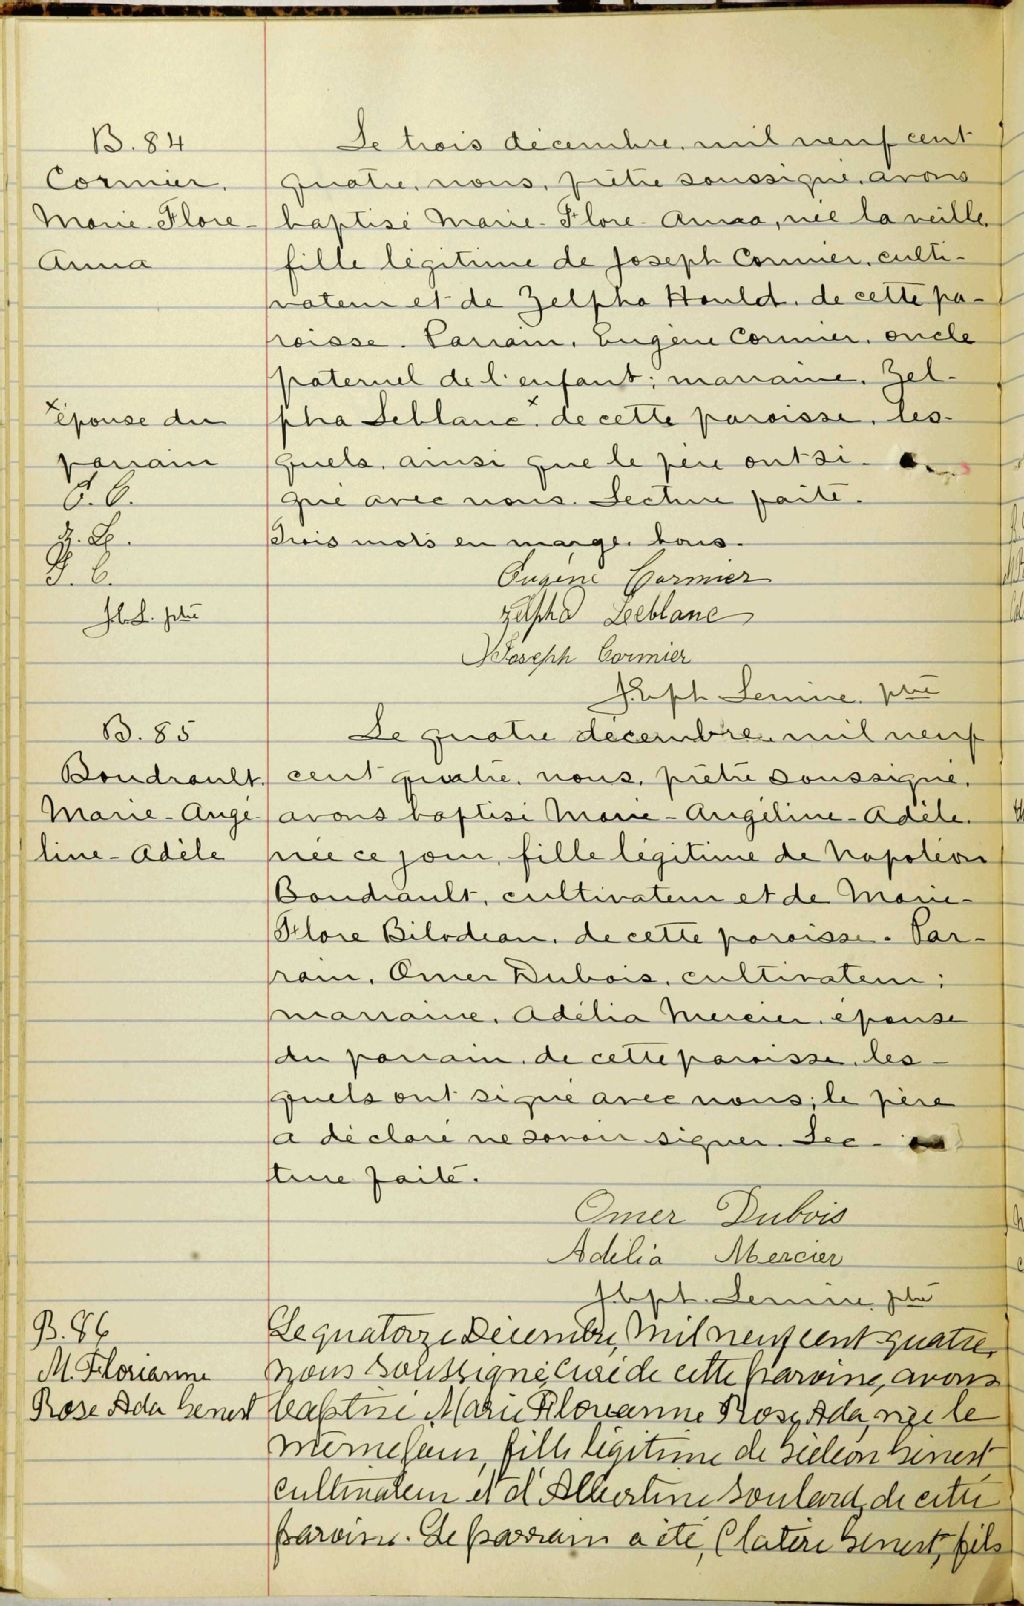 B. 84
Cormier,
Marie-Flore-
Anna
Le trois décembre, mil neuf cent
quatre, nous, prêtre soussigné, avons
baptisé Marie-Flore-Anna, née la veille,
fille légitime de Joseph Cormier, culti-
vateur et de Zelpha Hould, de cette pa-
roisse. Parrain, Eugène Cormier, oncle
paternel de l'enfant; marraine, Zel-
pha Leblanc x de cette paroisse, les-
quels, ainsi que le père ont si-
gné avec nous. Lecture faite.
Trois mots en marge, bons.
x épouse du
parrain
E. C.
Z. L.
J. C.
J.E.L. ptre
Eugène Cormier
Zelpha Leeblanc
Joseph Cormier
Lemire, ptre
B. 85
Boudrault,
Marie-Angé-
line-Adèle
Le quatre décembre, mil neuf
cent quatre, nous, prêtre soussigné,
avons baptisé Marie-Angéline-Adèle,
née ce jour, fille légitime de Napoléon
Boudrault, cultivateur et de Marie-
Flore Bilodeau, de cette paroisse. Par-
rain, Omer Dubois, cultivateur;
marraine, Adélia Mercier, épouse
du parrain, de cette paroisse, les-
quels ont signé avec nous; le père
a déclaré ne savoir signer. Lec-
ture faite.
Omer Dubois
Adélia Mercier
Lemire, ptre
B. 86
M. Florianne
Rose Ada Genest
Le quatorze Décembre, mil neuf cent quatre,
nous soussigné, curé de cette paroisse, avons
baptisé Marie Florianne Rose Ada, née le
même jour, fille légitime de Gédéon Genest
cultivateur et d'Albertine Soulard, de cette
paroisse. Le parrain a été, Genest, fils